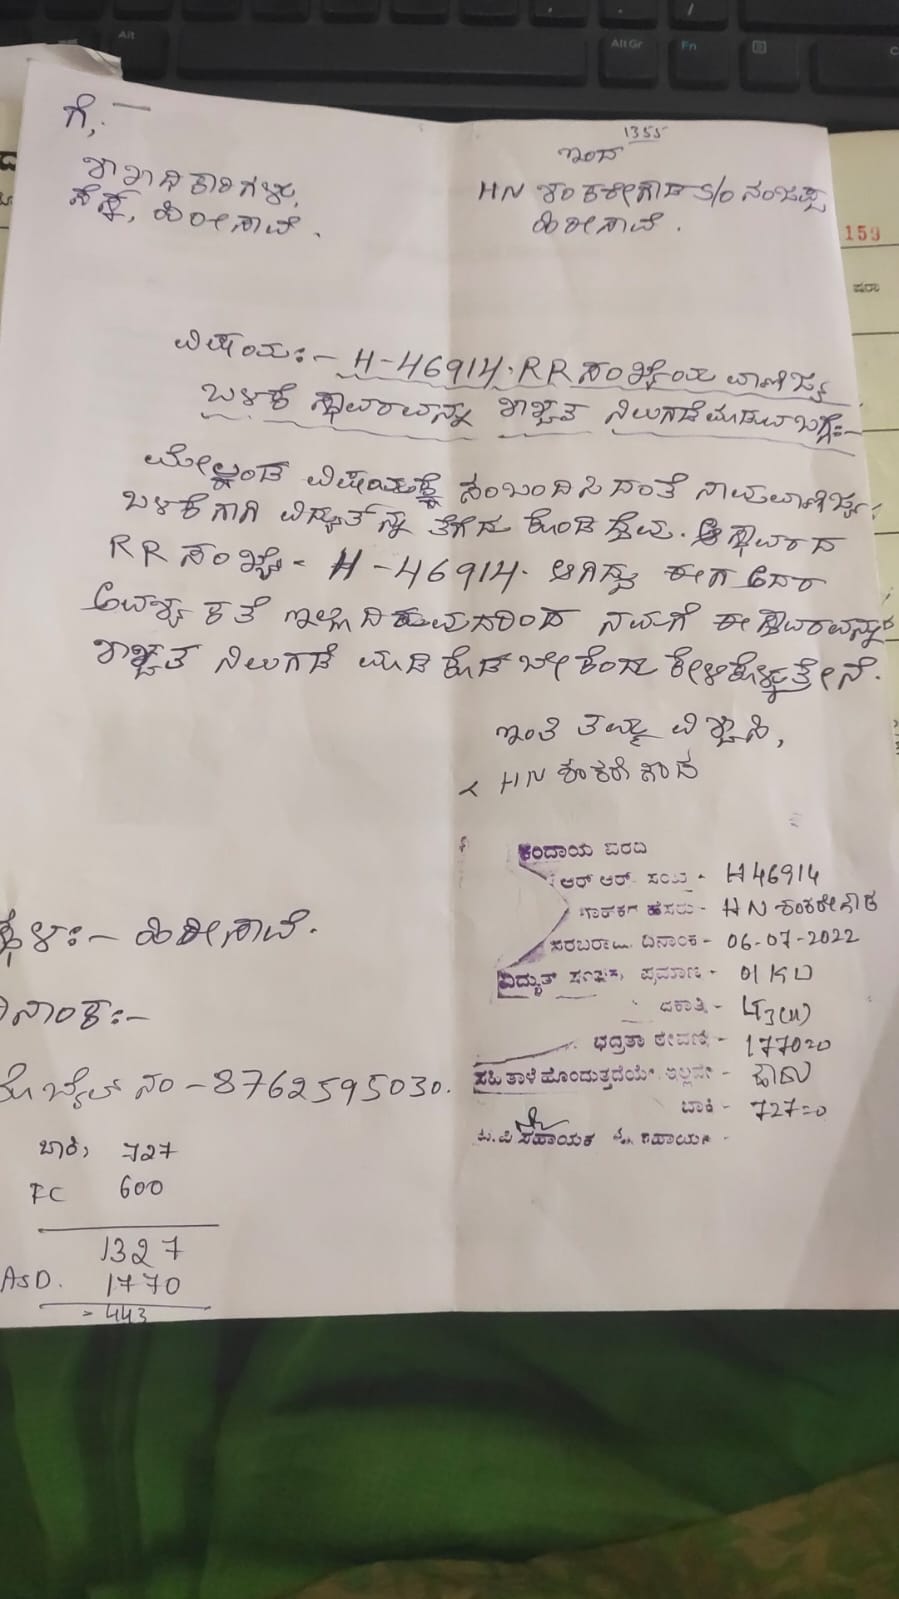 ಗೆ,
1355
ಇಂದ
ಶಾಖಾಧಿಕಾರಿಗಳು,
ಸೆಸ್ಕ್, ಹಿರೀಸಾವೆ.
HN ಶಂಕರೇಗೌಡ S/o ನಂಜಪ್ಪ
ಹಿರೀಸಾವೆ.
159
ವಿಷಯ:- H-46914. RR ಸಂಖ್ಯೆಯ ವಾಣಿಜ್ಯ
ಬಳಕೆ ಸ್ಥಾವರವನ್ನು ಶಾಶ್ವತ ನಿಲುಗಡೆ ಮಾಡುವ ಬಗ್ಗೆ:-
ಮೇಲ್ಕಂಡ ವಿಷಯಕ್ಕೆ ಸಂಬಂದಿಸಿದಂತೆ ನಾವು ವಾಣಿಜ್ಯ
ಬಳಕೆಗಾಗಿ ವಿದ್ಯುತ್‌ನ್ನು ತೆಗೆದು ಕೊಂಡಿದ್ದೆವು. ಆ ಸ್ಥಾವರದ
RR ಸಂಖ್ಯೆ - H-46914. ಆಗಿದ್ದು ಈಗ ಅದರ
ಅವಶ್ಯಕತೆ ಇಲ್ಲದಿರುವುದರಿಂದ ನಮಗೆ ಈ ಸ್ಥಾವರವನ್ನು
ಶಾಶ್ವತ ನಿಲುಗಡೆ ಮಾಡಿ ಕೊಡಬೇಕೆಂದು ಕೇಳಿಕೊಳ್ಳುತ್ತೇನೆ.
ಇಂತಿ ತಮ್ಮ ವಿಶ್ವಾಸಿ,
HN ಶಂಕರೇಗೌಡ
ಕಂದಾಯ ವರದಿ
ಆರ್ ಆರ್ ಸಂಖ್ಯೆ - H46914
ಗ್ರಾಹಕರ ಹೆಸರು - HN ಶಂಕರೇಗೌಡ
ಸ್ಥಳ:- ಹಿರೀಸಾವೆ.
ಸರಬರಾಜು ದಿನಾಂಕ - 06-07-2022
ವಿದ್ಯುತ್ ಪ್ರಮಾಣ - 01 KW
ದಿನಾಂಕ:-
ಜಕಾತಿ - LT3(ii)
ಭದ್ರತಾ ಠೇವಣಿ - 1770=0
ಮೊಬೈಲ್ ನಂ - 8762595030.
ಸಹಿ ತಾಳೆ ಹೊಂದುತ್ತದೆಯೇ ಇಲ್ಲವೇ - ಹೌದು
ಬಾಕಿ - 727=0
ಸಹಾಯಕ
ಬಾಕಿ, 727
FC 600
1327
ASD. 1770
- 443